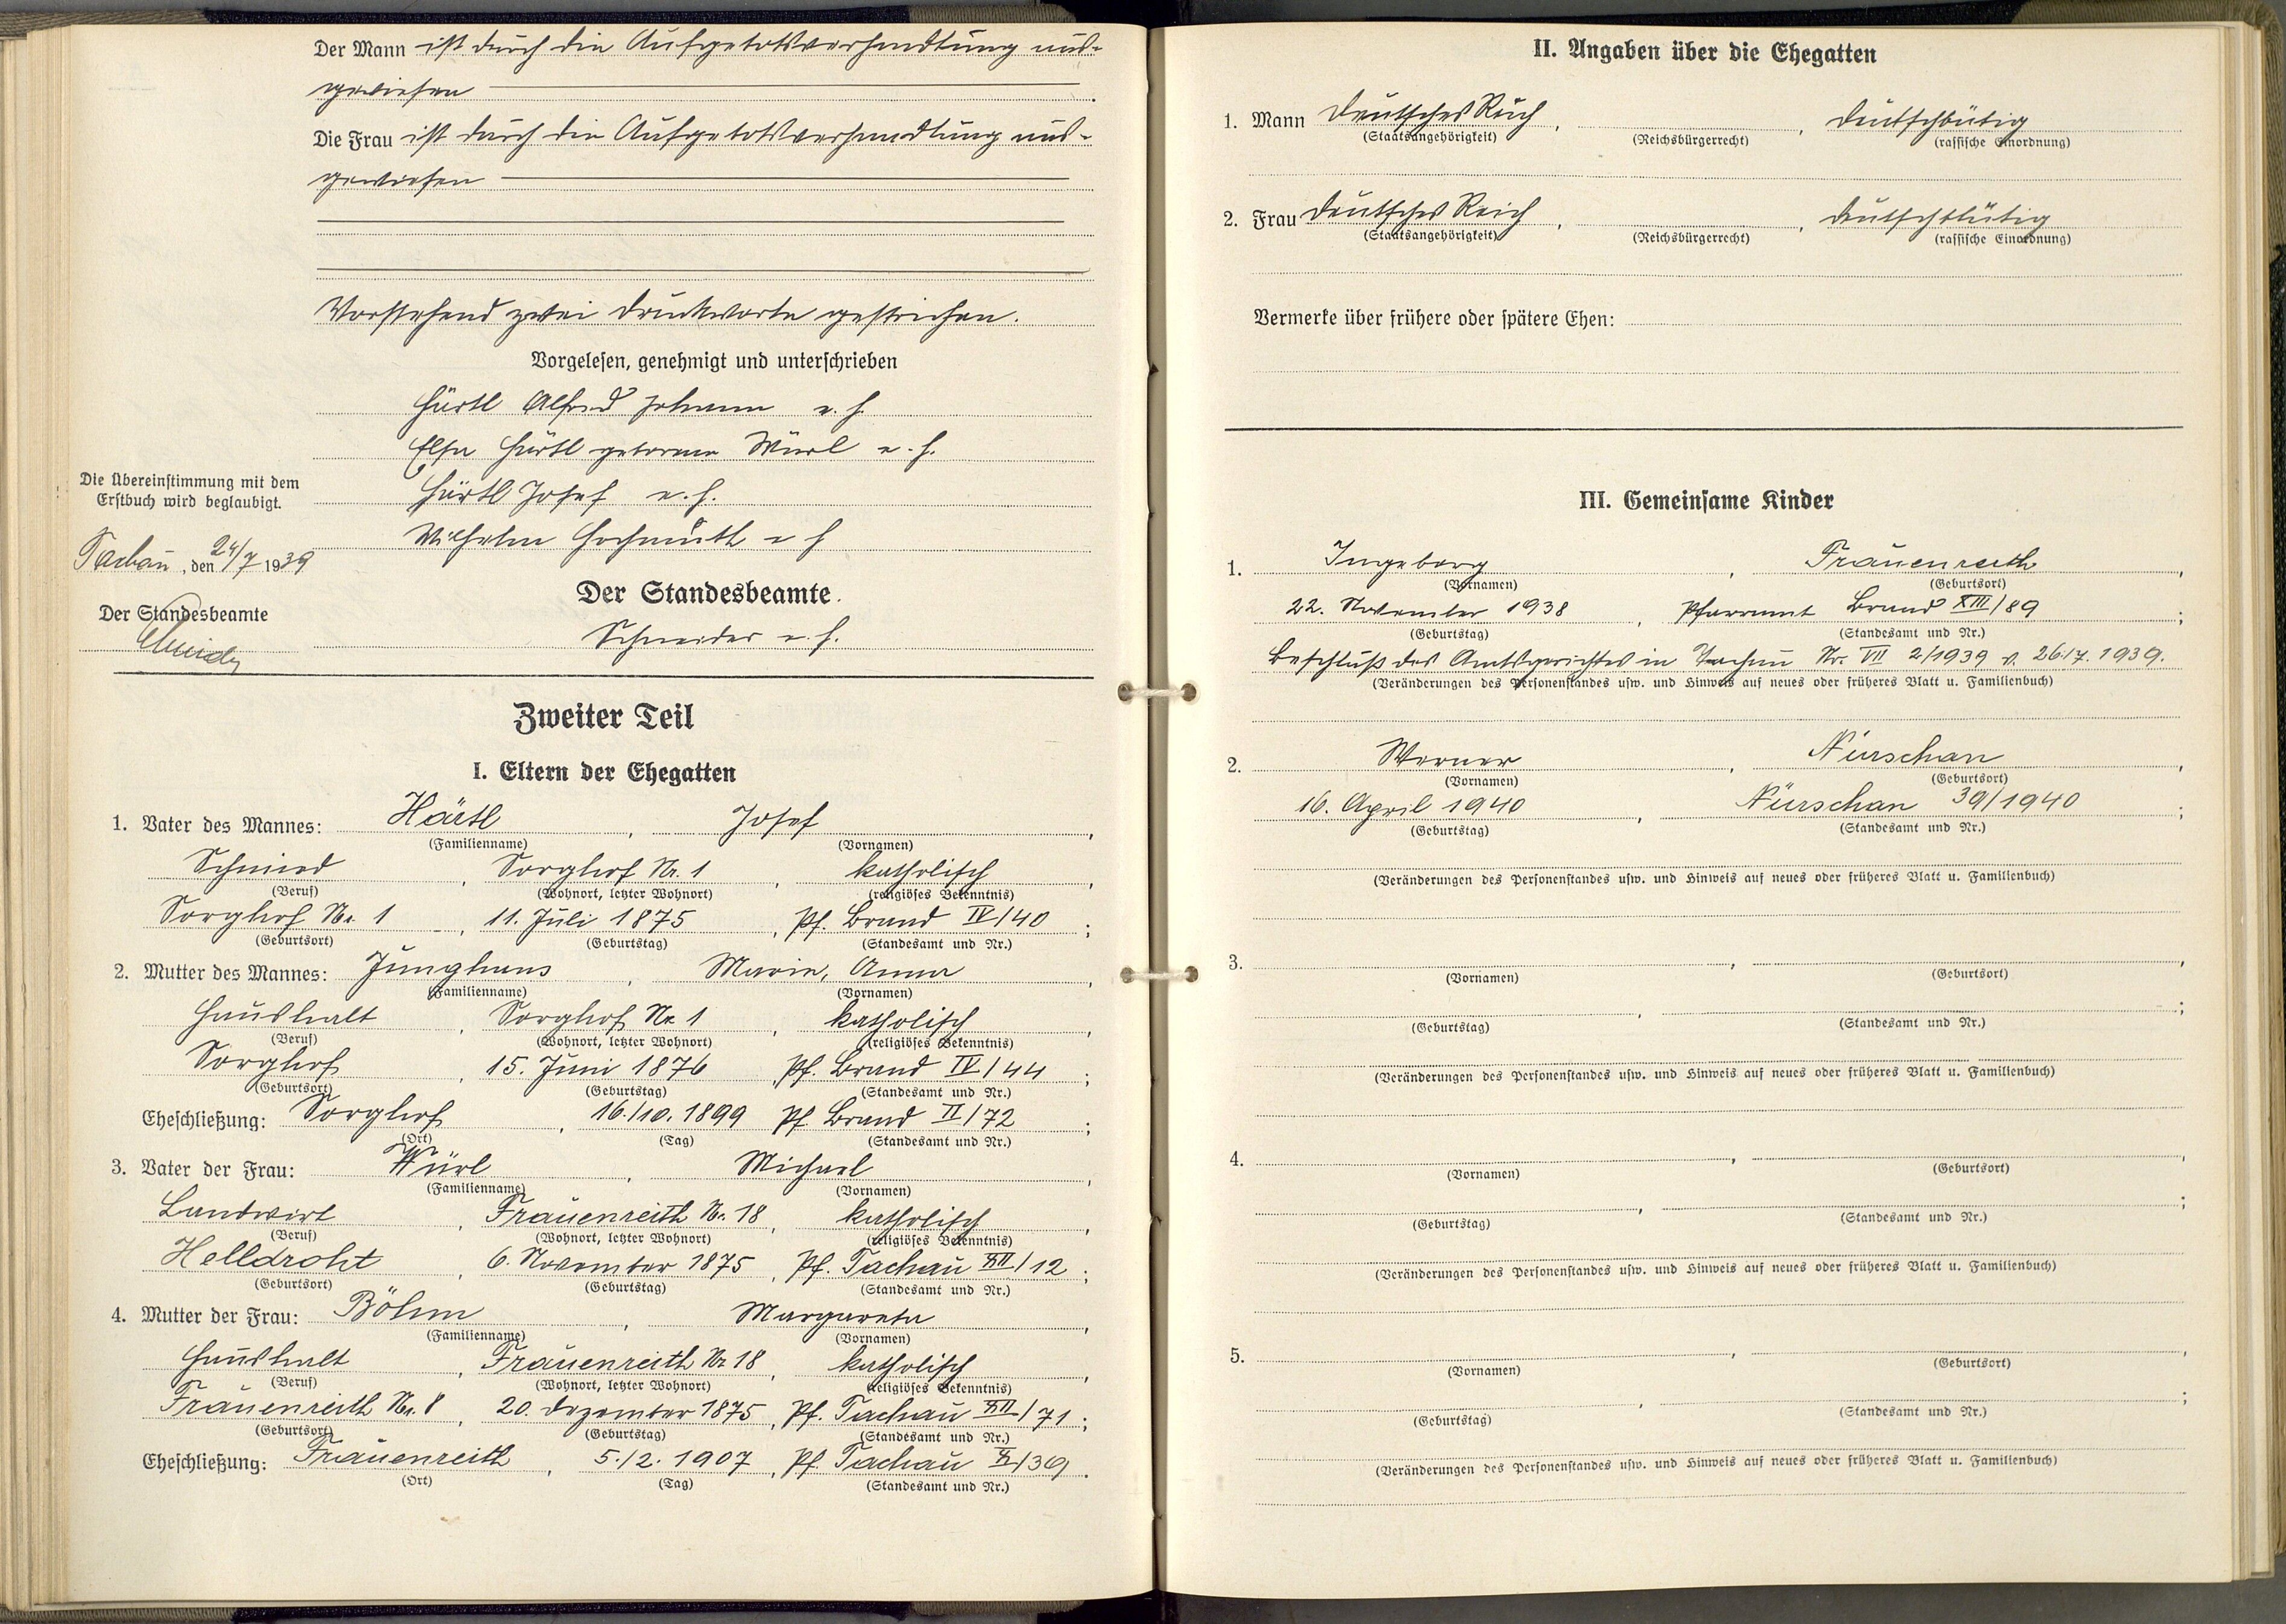 Der Mann ist durch die Aufgebotsverhandlung aus-
gewiesen
Die Frau ist durch die Aufgebotsverhandlung aus-
gewiesen
Vorstehend zwei Druckworte gestrichen.
Vorgelesen, genehmigt und unterschrieben
Härtl Alfred Johann e. h.
Elsa Härtl geborene Würl e. h.
Härtl Josef e. h.
Wilhelm Hochmuth e h
Die Übereinstimmung mit dem
Erstbuch wird beglaubigt.
Tachau, den 24/7 1939
Der Standesbeamte
Der Standesbeamte.
Schneider e. h.
Zweiter Teil
I. Eltern der Ehegatten
1. Vater des Mannes: Härtl, Josef,
(Familienname) (Vornamen)
Schmied, Sorghof Nr. 1, katholisch,
(Beruf) (Wohnort, letzter Wohnort) (religiöses Bekenntnis)
Sorghof Nr. 1, 11. Juli 1875, Pf. Brand IV/40;
(Geburtsort) (Geburtstag) (Standesamt und Nr.)
2. Mutter des Mannes: Junghans, Marie, Anna,
(Familienname) (Vornamen)
Haushalt, Sorghof Nr 1, katholisch,
(Beruf) (Wohnort, letzter Wohnort) (religiöses Bekenntnis)
Sorghof, 15. Juni 1876, Pf. Brand IV/44;
(Geburtsort) (Geburtstag) (Standesamt und Nr.)
Eheschließung: Sorghof, 16./10. 1899 Pf Brand II/72;
(Ort) (Tag) (Standesamt und Nr.)
3. Vater der Frau: Würl, Michael,
(Familienname) (Vornamen)
Landwirt, Frauenreith Nr. 18, katholisch,
(Beruf) (Wohnort, letzter Wohnort) (religiöses Bekenntnis)
Helldroht, 6. November 1875, Pf. Tachau XII/12;
(Geburtsort) (Geburtstag) (Standesamt und Nr.)
4. Mutter der Frau: Böhm, Margareta,
(Familienname) (Vornamen)
Haushalt, Frauenreith Nr 18, katholisch,
(Beruf) (Wohnort, letzter Wohnort) (religiöses Bekenntnis)
Frauenreith Nr. 8, 20. Dezember 1875, Pf. Tachau XII/71;
(Geburtsort) (Geburtstag) (Standesamt und Nr.)
Eheschließung: Frauenreith, 5./2. 1907, Pf. Tachau X/39.
(Ort) (Tag) (Standesamt und Nr.)
II. Angaben über die Ehegatten
1. Mann Deutsches Reich, , deutschblütig
(Staatsangehörigkeit) (Reichsbürgerrecht) (rassische Einordnung)
2. Frau Deutsches Reich, , deutschblütig
(Staatsangehörigkeit) (Reichsbürgerrecht) (rassische Einordnung)
Vermerke über frühere oder spätere Ehen:
III. Gemeinsame Kinder
1. Ingeborg, Frauenreith,
(Vornamen) (Geburtsort)
22. November 1938, Pfarramt Brand XIII/89;
(Geburtstag) (Standesamt und Nr.)
Beschluß des Amtsgerichtes in Tachau Nr. VII 2/1939 v. 26./7. 1939.
(Veränderungen des Personenstandes usw. und Hinweis auf neues oder früheres Blatt u. Familienbuch)
2. Werner, Nürschan,
(Vornamen) (Geburtsort)
16. April 1940, Nürschan 39/1940;
(Geburtstag) (Standesamt und Nr.)
(Veränderungen des Personenstandes usw. und Hinweis auf neues oder früheres Blatt u. Familienbuch)
3. , ,
(Vornamen) (Geburtsort)
, ;
(Geburtstag) (Standesamt und Nr.)
(Veränderungen des Personenstandes usw. und Hinweis auf neues oder früheres Blatt u. Familienbuch)
4. , ,
(Vornamen) (Geburtsort)
, ;
(Geburtstag) (Standesamt und Nr.)
(Veränderungen des Personenstandes usw. und Hinweis auf neues oder früheres Blatt u. Familienbuch)
5. , ,
(Vornamen) (Geburtsort)
, ;
(Geburtstag) (Standesamt und Nr.)
(Veränderungen des Personenstandes usw. und Hinweis auf neues oder früheres Blatt u. Familienbuch)